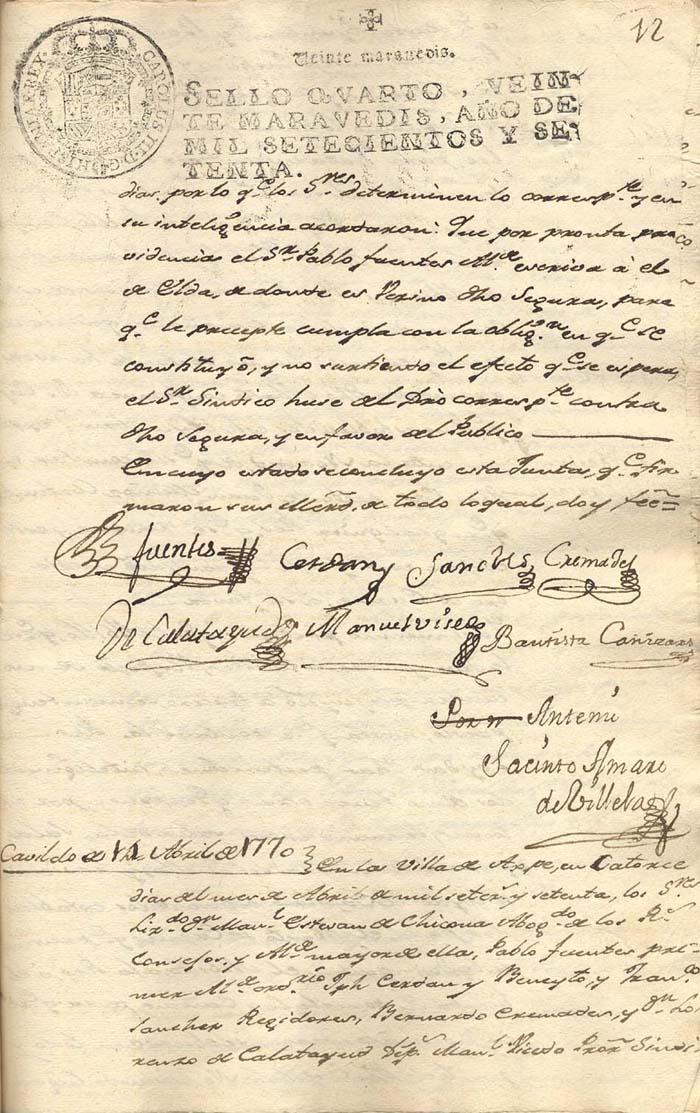 12
Veinte maravedis.
SELLO QVARTO, VEIN-
TE MARAVEDIS, AÑO DE
MIL SETECIENTOS Y SE-
TENTA.
CAROLUS III D G HISPANIAR REX
dias, por lo q.e los S.res determinen lo corresp.te y en
su intelig.encia acordaron: Que por pronta pro
videncia el S.r Pablo fuentes Al.de escriva à el
de Elda, de donde es Vezino dho Segura, para
q.e le precepte cumpla con la oblig.on en q.e se
constituyó, y no surtiendo el efecto q.e se espera,
el S.r Sindico huse del Dro corresp.te contra
dho Segura, y en favor del Publico
En cuyo estado se concluyo esta Junta, q.e fir
maron sus Merd.s de todo lo qual, doy fee=
fuentes Cerdan y Sanches Cremades
De Calatayud Manuel viseo Bautista Cañizares
Antemi
Jacinto Amaro
de Villela
Cavildo de 14 Abril de 1770
En la Villa de Aspe, en Catorce
dias del mes de Abril de mil seter.s y setenta, los S.res
Liz.do D.n Man.l Estevan de Chicona Abog.do de los R.s
Consejos, y Al.de mayor de ella, Pablo fuentes pri-
mer Al.de ord.rio Jph Cerdan y Beneyto, y Fran.co
Sanchez Regidores, Bernardo Cremades, y D.n Lo-
renzo de Calatayud Dip.s Man.l Visedo Pror. Sindi